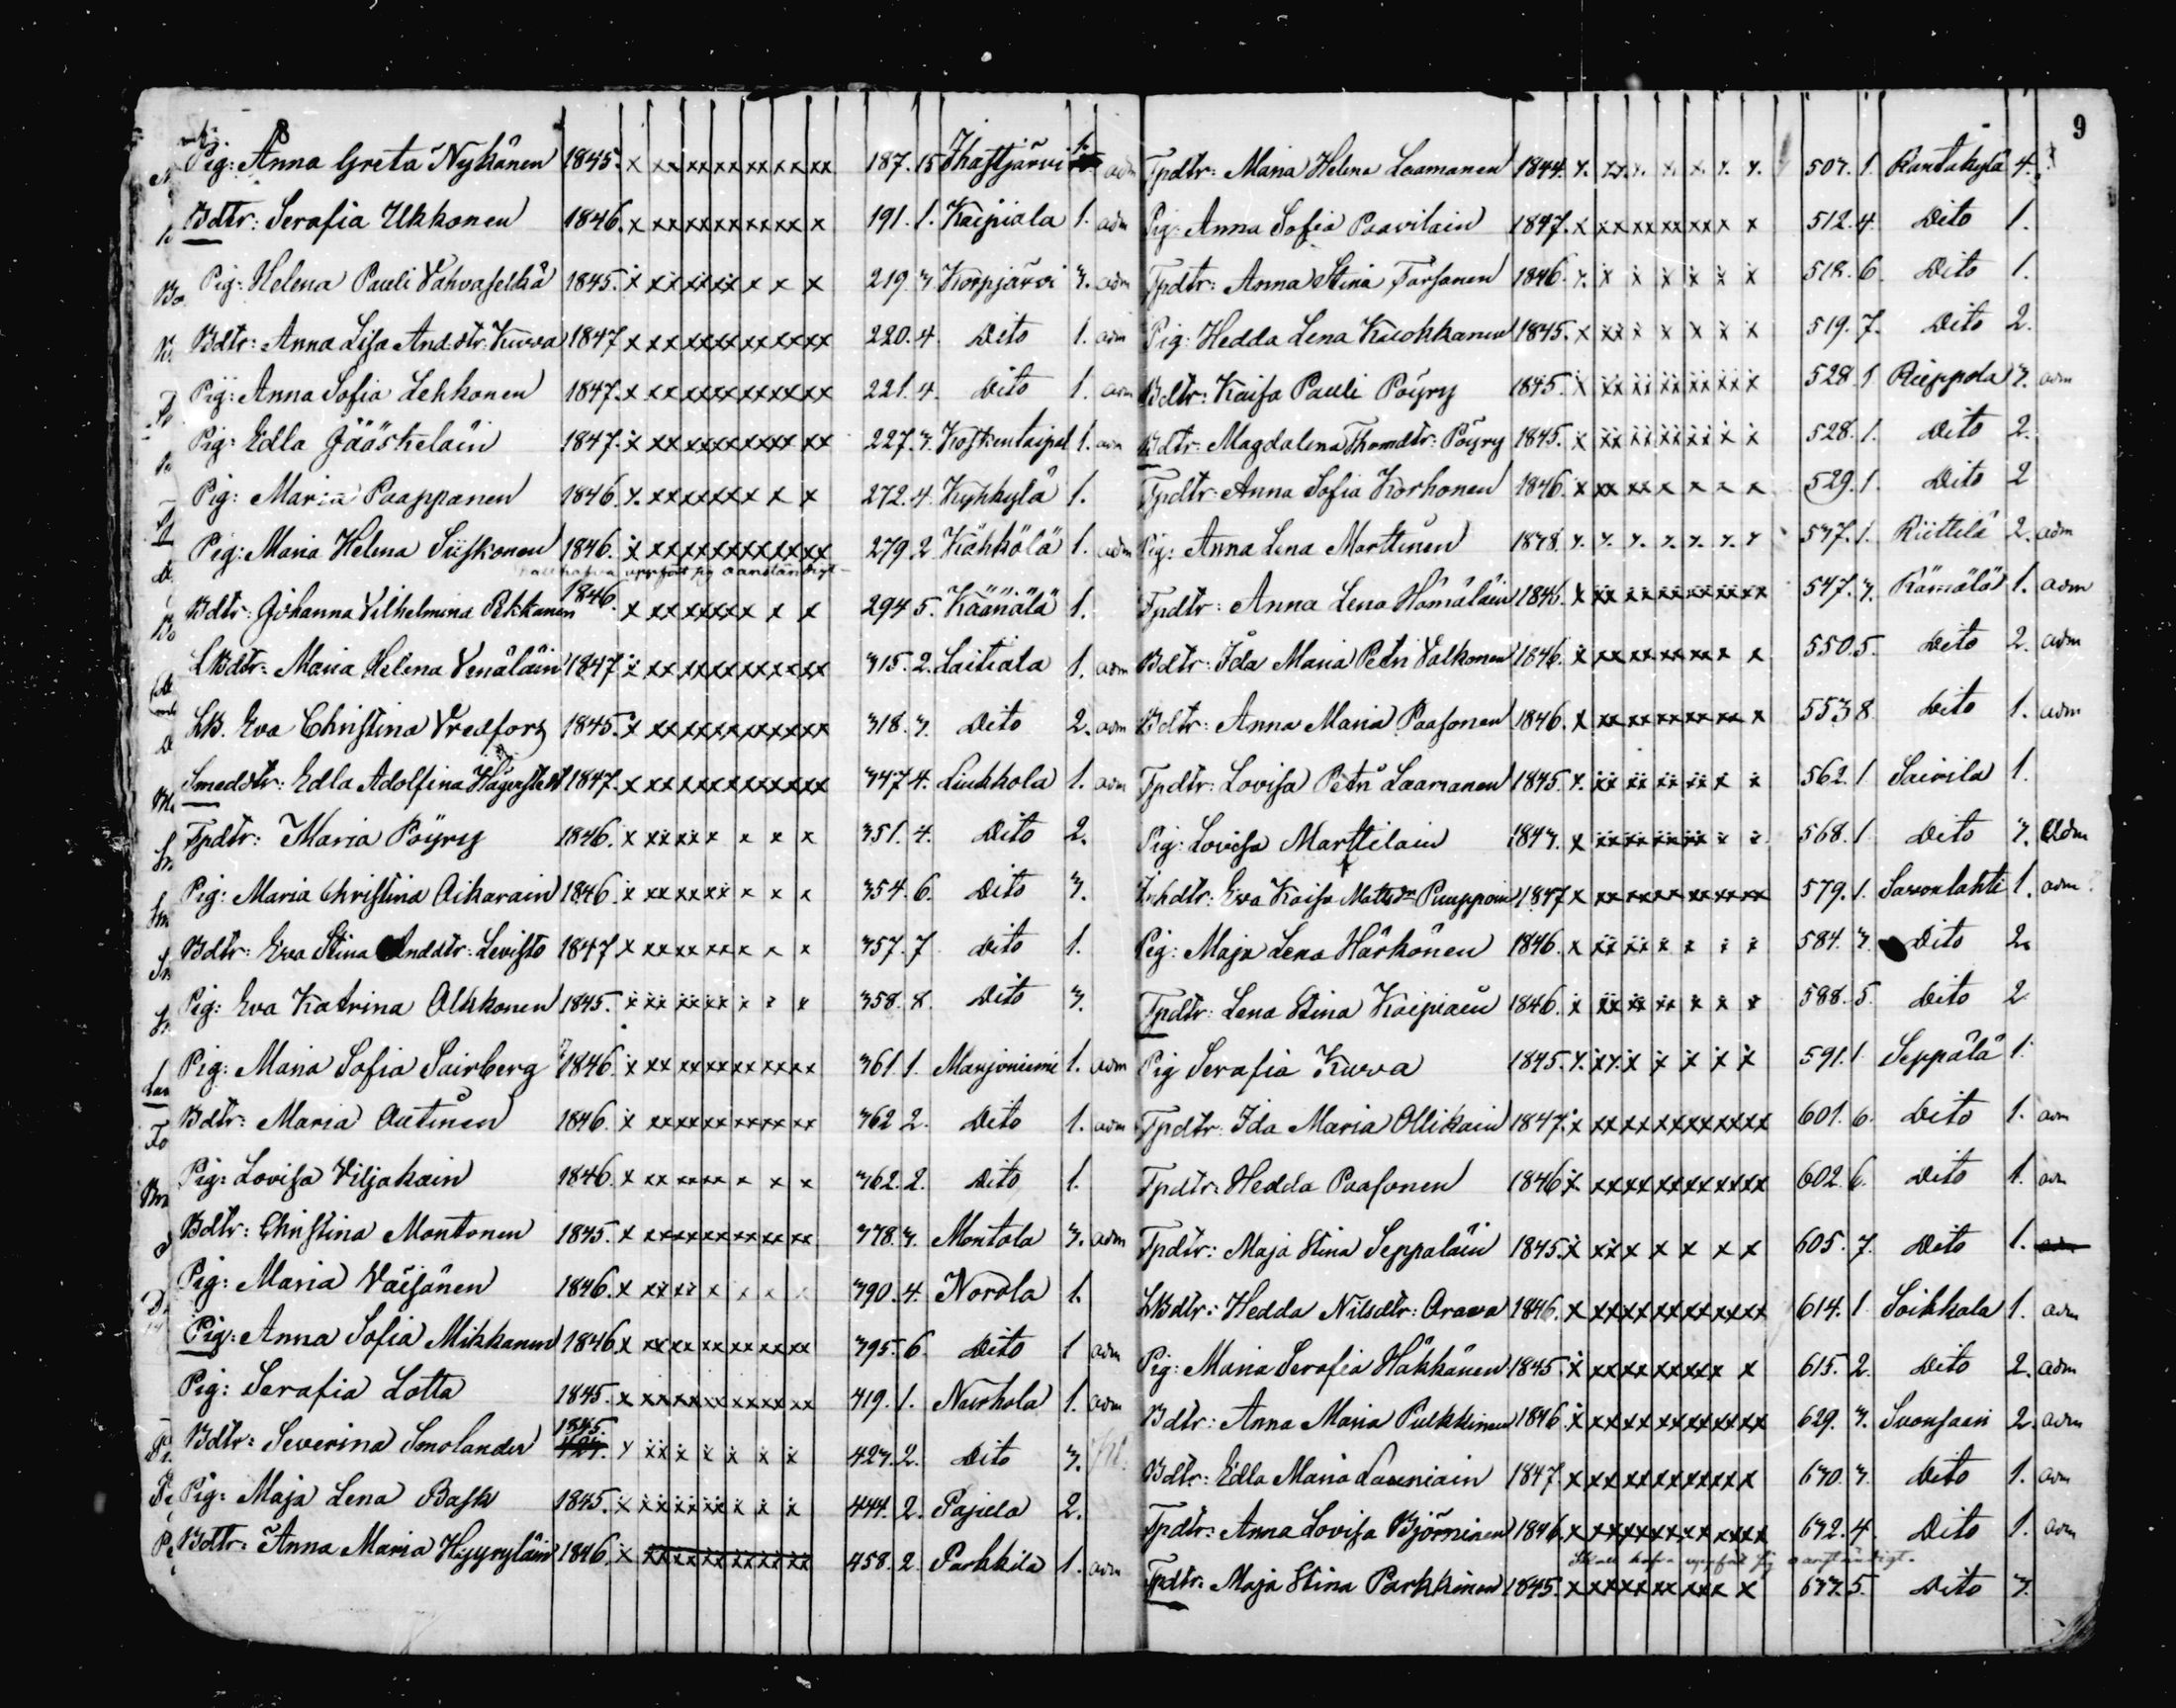 Pig: Anna Greta Nykänen 1845. x xx xx xx xx xx xx 187. 15 Ihastjärvi 1. adm
Bdtr: Serafia Ukkonen 1846. x xx xx xx xx xx x 191. 1. Kaipiala 1. adm
Pig: Helena Pauli Vahvaselkä 1845. x xx xx xx x x x 219. 3 Korpjärvi 3. adm
Bdtr: Anna Lisa And.dtr: Kurva 1847 x xx xx xx xx xx xx 220. 4. Dito 1. adm
Pig: Anna Sofia Lehkonen 1847. x xx xx xx xx xx xx 221. 4. Dito 1. adm
Pig: Edla Jääskeläin 1847. x xx xx xx xx xx xx 227. 3. Koskentaipal 1. adm
Pig: Maria Paappanen 1846 x. xx xx xx x x x 272. 4. Kyhkylä 1.
Pig: Maria Helena Siiskonen 1846. x xx xx xx xx xx xx 279. 2 Kähkölä 1. adm
uppfört sig oanständigt
Bdtr: Johanna Vilhelmina Pekkanen 1846. x xx xx xx x x x 294 5. Käänälä 1.
LBdtr: Maria Helena Venäläin 1847 x xx xx xx xx xx xx 315. 2. Laitiala 1. adm
LB. Eva Christina Vredfors 1845. x xx xx xx xx xx xx 318. 3. Dito 2. adm
Smeddtr: Edla Adolfina Hägerstedt 1847. x xx xx xx xx xx xx 347 4. Liukkola 1. adm
Tpdtr: Maria Pöyry 1846. x xx xx x x x x 351. 4. Dito 2.
Pig: Maria Christina Aikarain 1846. x xx xx xx x x x 354. 6. Dito 3.
Bdtr: Eva Stina Anddtr: Levisto 1847 x xx xx xx x x x 357. 7 Dito 1.
Pig: Eva Katrina Olkkonen 1845. x xx xx xx x x x 358. 8. Dito 3.
Pig: Maria Sofia Sairberg 1846. x xx xx xx xx xx xx 361 1. Marjoniemi 1. adm
Bdtr: Maria Autinen 1846. x xx xx xx xx xx xx 362 2. Dito 1. adm
Pig: Lovisa Viljakain 1846. x xx xx xx x x x 362. 2. Dito 1.
Bdtr: Christina Montonen 1845. x xx xx xx xx xx xx 378. 3. Montola 3. adm
Pig: Maria Väisänen 1846. x xx xx x x x x 390. 4. Norola 1.
Pig: Anna Sofia Mikkanen 1846. x xx xx xx xx xx xx 395. 6. Dito 1 adm
Pig: Serafia Lotta 1845. x xx xx xx xx xx xx 419. 1. Nurhola 1. adm
Bdtr: Severina Smolander 1845. x xx x x x x x 423. 2. Dito 3.
Pig: Maja Lena Bask 1845. x xx xx xx x x x 444. 2. Pajula 2.
Bdtr: Anna Maria Hyyryläin 1846. x xx xx xx xx xx xx 458. 2. Parkkila 1. adm
9
Tpdtr: Maria Helena Laamanen 1844. x. xx. x. x. x. x. x. 507. 1. Rantakylä 4.
Pig: Anna Sofia Paavilain 1847. x xx xx xx xx x x 512. 4. Dito 1.
Tpdtr: Anna Stina Torsonen 1846. x. x x x x x x 518. 6. Dito 1.
Pig: Hedda Lena Kuokkanen 1845. x xx x x x x x 519. 7. Dito 2.
Bdtr: Kaisa Pauli Pöyry 1845. x xx xx xx xx xx x 528. 1 Rieppola 3. adm
Bdtr: Magdalena Thomdtr: Pöyry 1845. x xx xx xx xx x x 528. 1. Dito 2.
Tpdtr: Anna Sofia Korhonen 1846. x xx xx x x x x 529. 1. Dito 2
Pig: Anna Lena Marttinen 1848. x. x. x. x. x. x. x 537. 1. Riittilä 2. adm
Tpdtr: Anna Lena Hämäläin 1846. x xx xx xx xx xx xx 547. 3. Rämälä 1. adm
Bdtr: Ida Maria Petri Valkonen 1846. x xx xx xx xx x x 550 5. Dito 2. adm
Bdtr: Anna Maria Paasonen 1846. x xx xx xx xx xx x 553 8. Dito 1. adm
Tpdtr: Lovisa Petri Laamanen 1845. x. xx xx xx xx x x 562. 1. Sairila 1.
Pig: Lovisa Marttilain 1843. x xx xx xx xx x x 568. 1. Dito 3. Adm
Eva Kaisa Mattsdr Puuppoin 1847 x xx xx xx xx xx xx 579. 1. Savonlahti 1. adm
Pig: Maja Lena Härkönen 1846. x xx xx x x x x 584. 3. Dito 2.
Tpdtr: Lena Stina Kaipiain 1846. x xx xx xx x x x 588. 5. Dito 2
Pig Serafia Kurva 1845. x. xx. x x x x x 591. 1. Seppälä 1.
Tpdtr: Ida Maria Ollikain 1847. x xx xx xx xx xx xx 601. 6. Dito 1. adm
Tpdtr: Hedda Paasonen 1846 x xx xx xx xx xx xx 602. 6. Dito 1. adm
Tpdtr: Maja Stina Seppäläin 1845. x xx x x x x x 605. 7. Dito 1. adm
LBdtr: Hedda Nilsdtr: Orava 1846. x xx xx xx xx xx xx 614. 1 Soikkala 1. adm
Pig: Maria Serafia Häkkänen 1845. x xx xx xx xx xx x 615. 2. Dito 2. adm
Bdtr: Anna Maria Pulkkinen 1846. x xx xx xx xx xx xx 629. 3. Suonsaari 2. adm
Bdtr: Edla Maria Launiain 1847. x xx xx xx xx xx x 630. 3. Dito 1. adm
Tpdtr: Anna Lovisa Björninen 1846. x xx xx xx xx xx xx 632. 4. Dito 1. adm
Skall hafva uppfört sig oanständigt.
Tpdtr: Maja Stina Parkkinen 1845. x xx xx xx xx x x 633. 5. Dito 3.